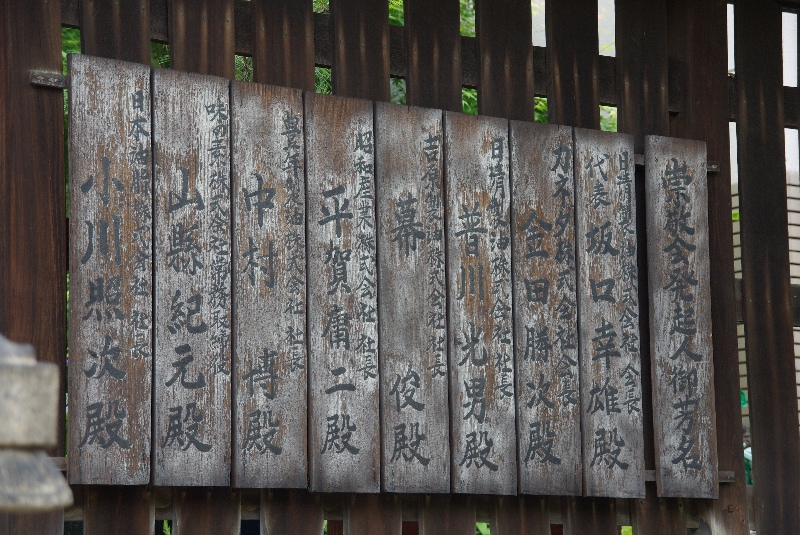 崇敬会発起人御芳名
日清製油株式会社 会長
代表 坂口幸雄殿
カネダ株式会社会長
金田勝次殿
日清製油株式会社社長
普川光男殿
吉原製油株式会社社長
幕 俊殿
昭和産業株式会社社長
平賀庸二殿
豊年製油株式会社 社長
中村 博殿
味の素株式会社常務取締役
山縣紀元殿
日本油脂株式会社社長
小川照次殿